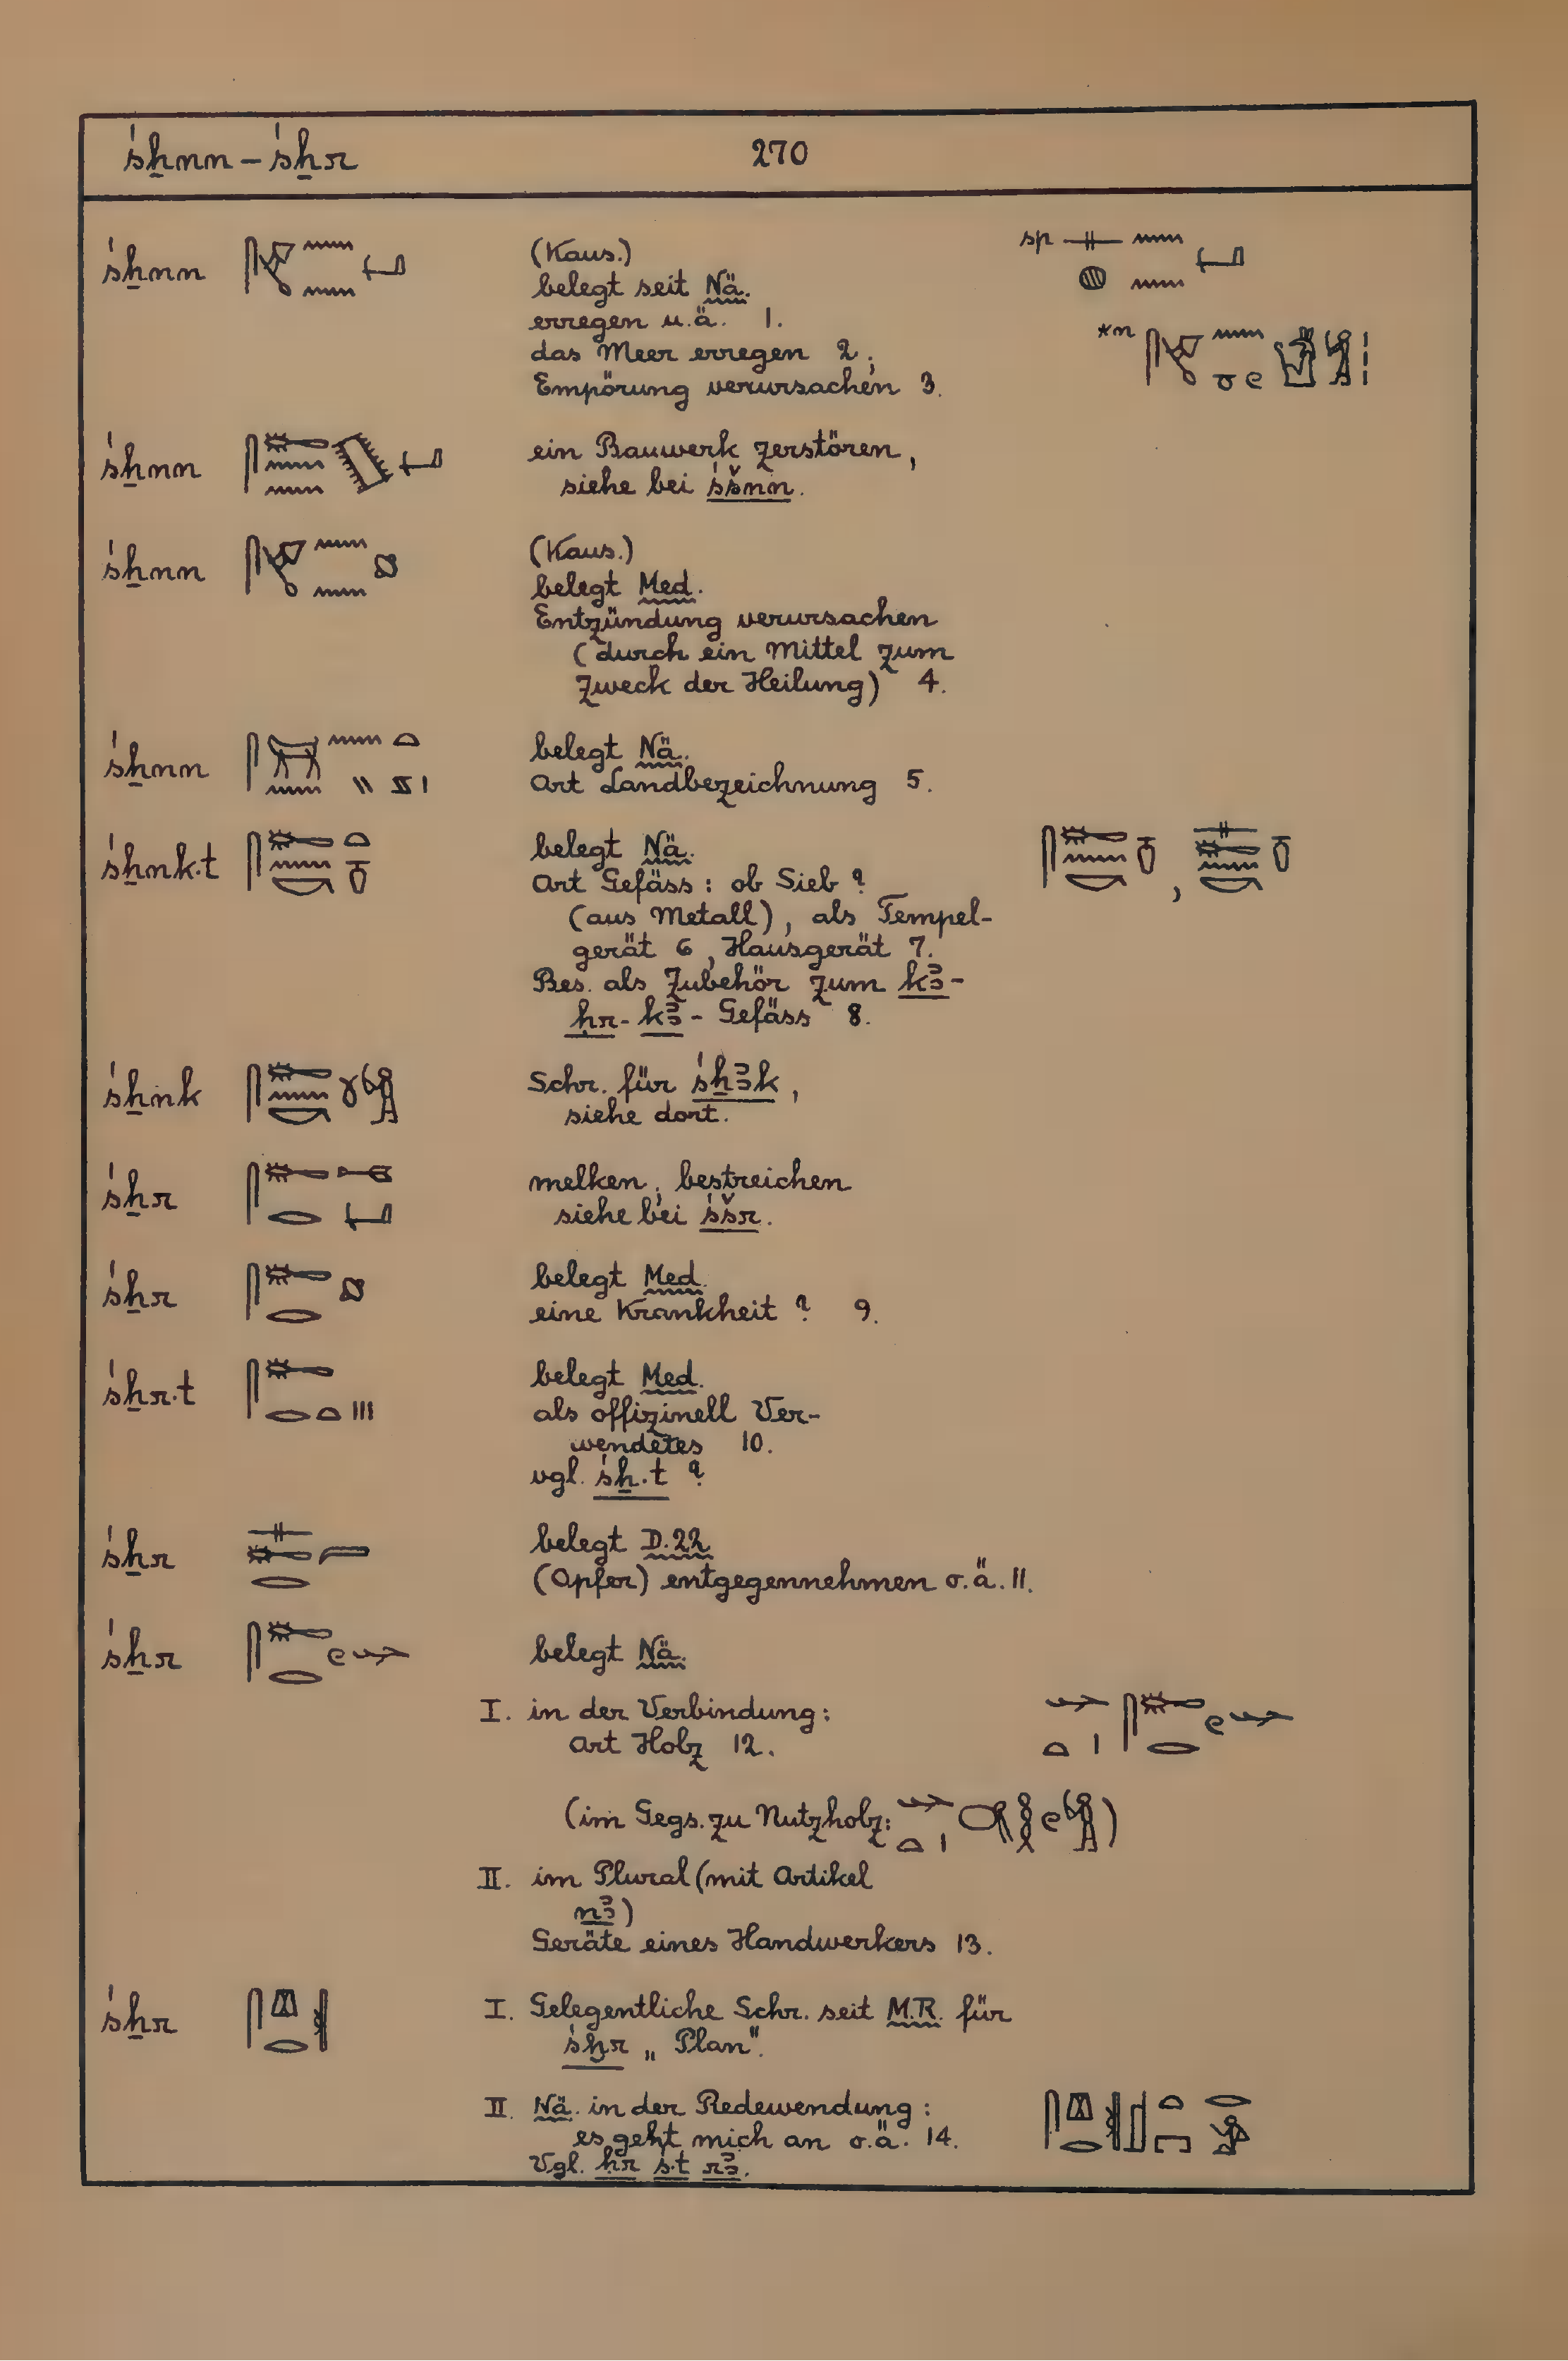 śẖnn – śẖr 270
śẖnn (Kaus.)
belegt seit Nä.
erregen u.ä. 1.
das Meer erregen 2;
Empörung verursachen 3.
sp
*n
śẖnn ein Bauwerk zerstören,
siehe bei śšnn.
śẖnn (Kaus.)
belegt Med.
Entzündung verursachen
(durch ein Mittel zum
Zweck der Heilung) 4.
śẖnn belegt Nä.
Art Landbezeichnung 5.
śẖnk.t belegt Nä.
Art Gefäss: ob Sieb?
(aus Metall), als Tempel-
gerät 6, Hausgerät 7.
Bes. als Zubehör zum kꜣ-
ḥr-kꜣ-Gefäss 8.
śẖnk Schr. für śẖꜣk,
siehe dort.
śẖr melken, bestreichen
siehe bei śšr.
śẖr belegt Med.
eine Krankheit? 9.
śẖr.t belegt Med.
als offizinell Ver-
wendetes 10.
vgl. śẖ.t ?
śẖr belegt D.22
(Opfer) entgegennehmen o.ä. 11.
śẖr belegt Nä.
I. in der Verbindung:
Art Holz 12.
(im Gegs. zu Nutzholz: )
II. im Plural (mit Artikel
nꜣ)
Geräte eines Handwerkers 13.
śẖr I. Gelegentliche Schr. seit M.R. für
śḫr „Plan".
II. Nä. in der Redewendung:
es geht mich an o.ä. 14.
Vgl. ḥr ś.t rꜣ.